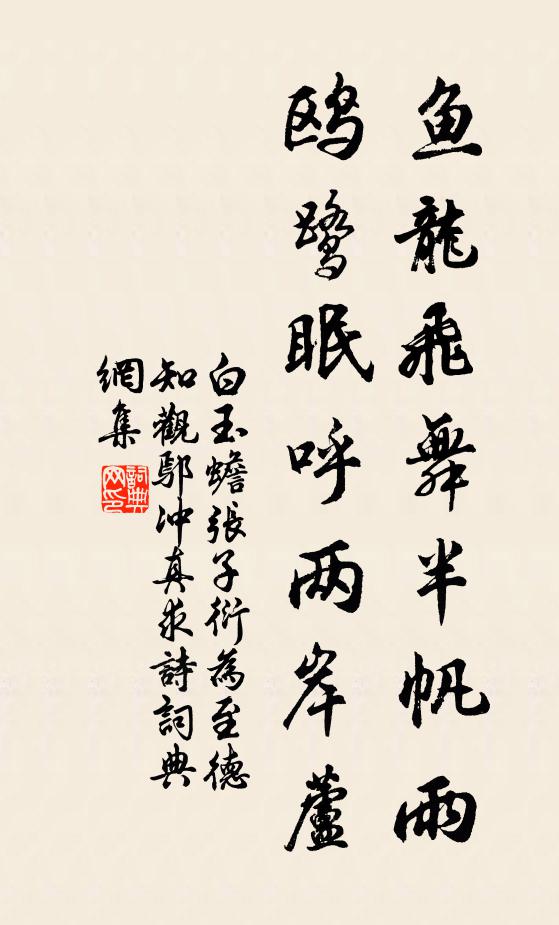 鱼龍飛舞半帆雨
鸥鹭眠呼两岸蘆
白玉蟾張子衍為至德
知觀鄢冲真求詩詞典
網集
詞典网印